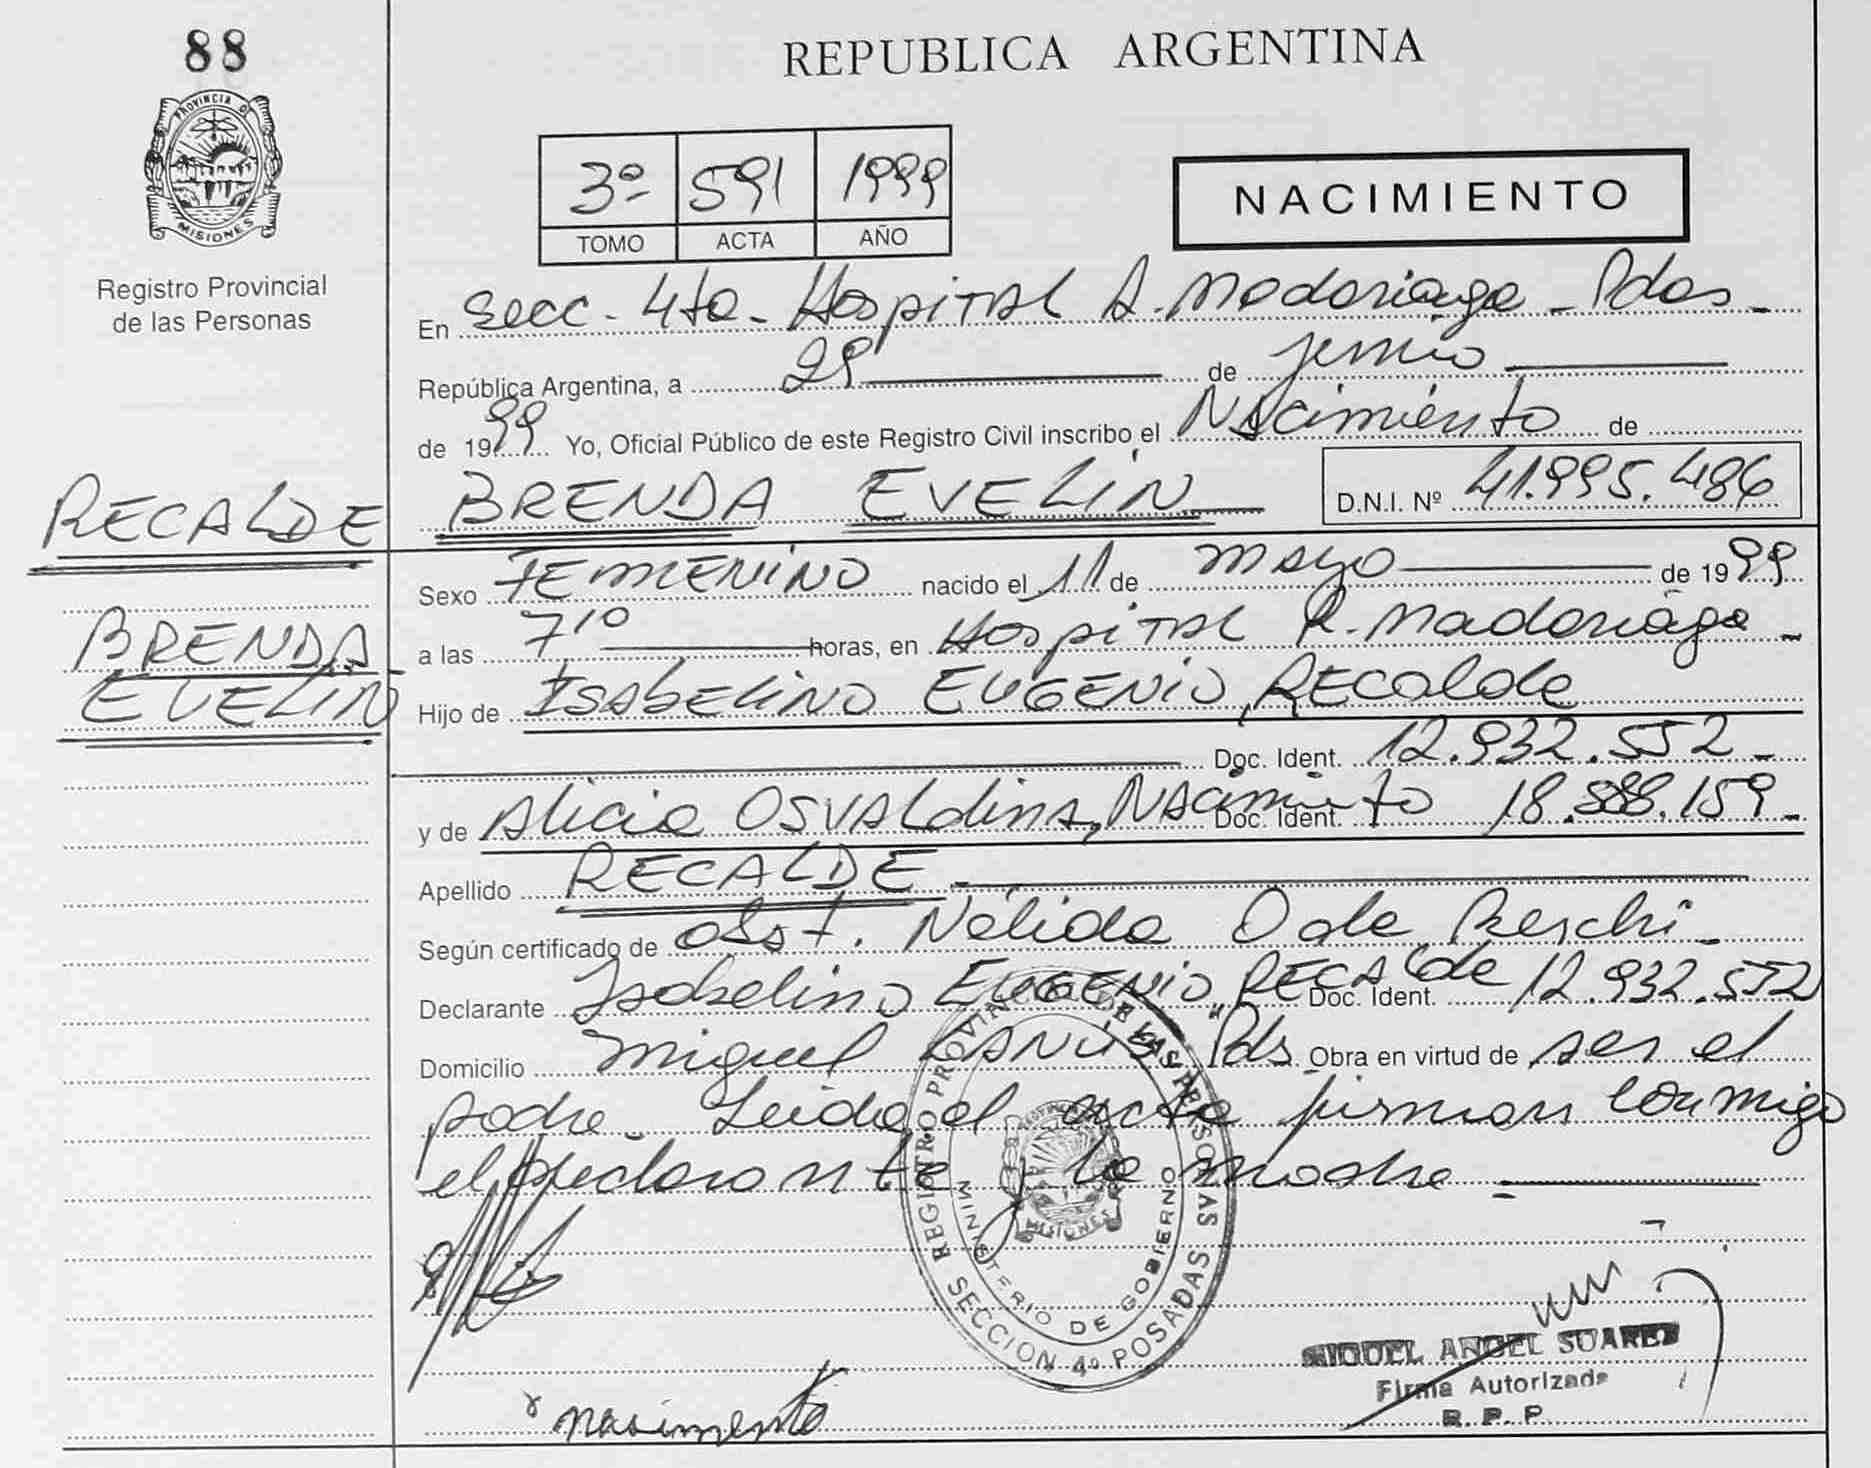 88
PROVINCIA DE
MISIONES
Registro Provincial
de las Personas
REPUBLICA ARGENTINA
3º 591 1999
TOMO ACTA AÑO
NACIMIENTO
En Secc. 4ta. Hospital R. Madariaga - Pdas -
República Argentina, a 29 de junio
de 1999 Yo, Oficial Público de este Registro Civil inscribo el Nacimiento de
BRENDA EVELIN D.N.I. Nº 41.995.486
RECALDE
BRENDA
EVELIN
Sexo FEMENINO nacido el 11 de mayo de 1999
a las 7 10 horas, en Hospital R. Madariaga -
Hijo de Isabelino EUGENIO, Recalde
Doc. Ident. 12.932.552 -
y de Alicia OSVALdina, NAcimiento Doc. Ident. 18.888.159 -
Apellido RECALDE -
Según certificado de obst. Nélida O de Reschi -
Declarante Isabelino EUGENIO, RECALde Doc. Ident. 12.932.552
Domicilio " Miguel LANÚS " Pds Obra en virtud de ser el
padre. Leida el acta firman conmigo
el declarante y la madre -
REGISTRO PROVINCIAL DE LAS PERSONAS
SECCION 4º POSADAS
MINISTERIO DE GOBIERNO
PROVINCIA
MISIONES
MIGUEL ANGEL SUAREZ
Firma Autorizada
R. P. P
nasimento